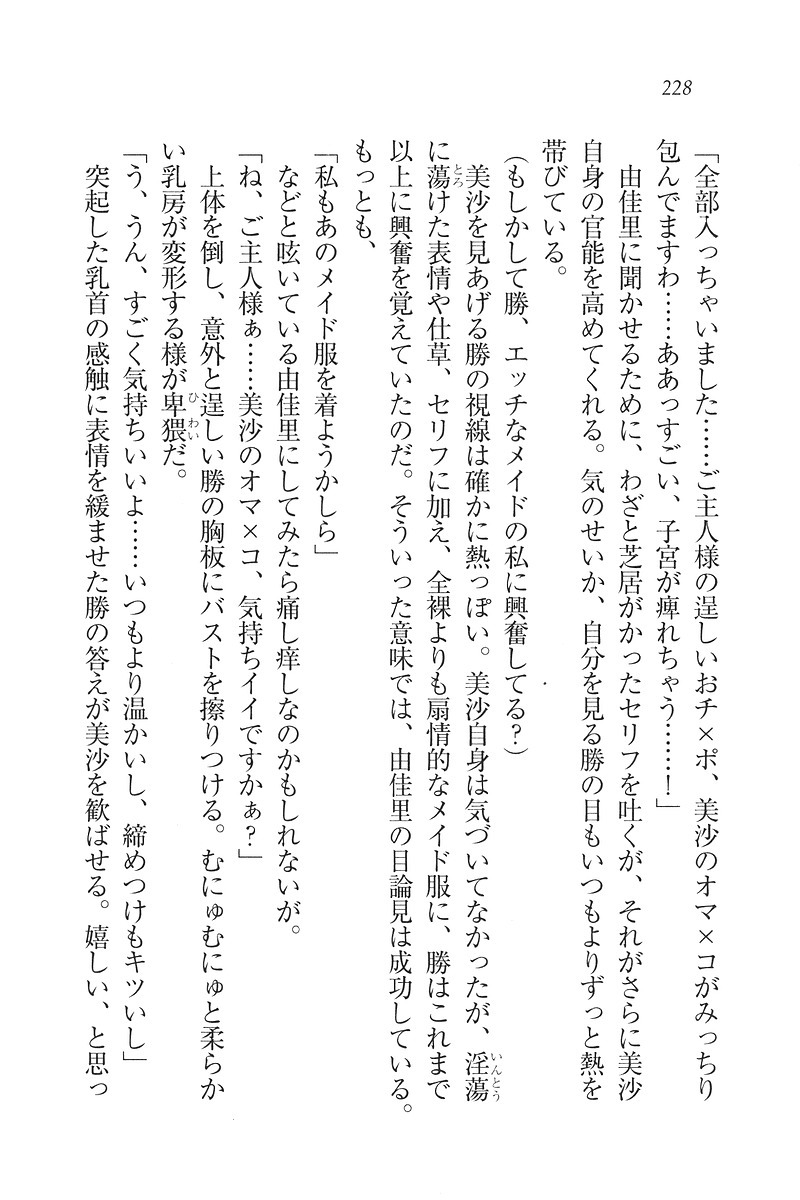 228
「全部入っちゃいました……ご主人様の逞しいおチ×ポ、美沙のオマ×コがみっちり
包んでますわ……ああっすごい、子宮が痺れちゃう……！」
由佳里に聞かせるために、わざと芝居がかったセリフを吐くが、それがさらに美沙
自身の官能を高めてくれる。気のせいか、自分を見る勝の目もいつもよりずっと熱を
帯びている。
（もしかして勝、エッチなメイドの私に興奮してる？）
美沙を見あげる勝の視線は確かに熱っぽい。美沙自身は気づいてなかったが、淫蕩
に蕩けた表情や仕草、セリフに加え、全裸よりも扇情的なメイド服に、勝はこれまで
以上に興奮を覚えていたのだ。そういった意味では、由佳里の目論見は成功している。
もっとも、
「私もあのメイド服を着ようかしら」
などと呟いている由佳里にしてみたら痛し痒しなのかもしれないが。
「ね、ご主人様ぁ……美沙のオマ×コ、気持ちイイですかぁ？」
上体を倒し、意外と逞しい勝の胸板にバストを擦りつける。むにゅむにゅと柔らか
い乳房が変形する様が卑猥だ。
「う、うん、すごく気持ちいいよ……いつもより温かいし、締めつけもキツいし」
突起した乳首の感触に表情を緩ませた勝の答えが美沙を歓ばせる。嬉しい、と思っ